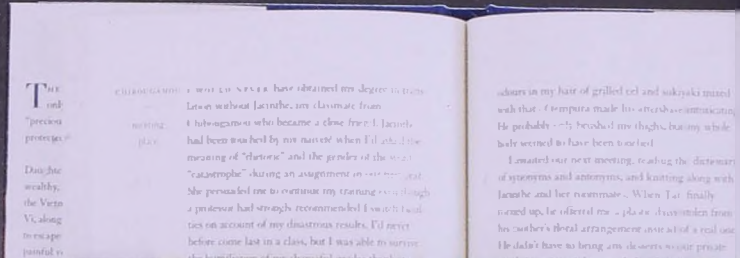 THE
only
"precious
protected
Daughte
wealthy,
the Vietn
Vi, along
to escape
painful
CHIBOUGAMOU
meeting
place
I WOULD NEVER have obtained my degree in trans-
lation without Jacinthe, my classmate from
Chibougamou who became a close friend. Jacinthe
had been touched by my naiveté when I'd asked the
meaning of "rhetoric" and the gender of the word
"catastrophe" during an assignment in
She persuaded me to continue my training even though
a professor had strongly recommended I switch facul-
ties on account of my disastrous results. I'd never
before come last in a class, but I was able to survive
odours in my hair of grilled eel and sukiyaki mixed
with that of tempura made his aftershave intoxicating.
He probably only brushed my thighs, but my whole
body seemed to have been touched.
I awaited our next meeting, reading the dictionary
of synonyms and antonyms, and knitting along with
Jacinthe and her roommates. When Tat finally
turned up, he offered me a plant stolen from
his mother's floral arrangement instead of a real one.
He didn't have to bring any flowers to our private